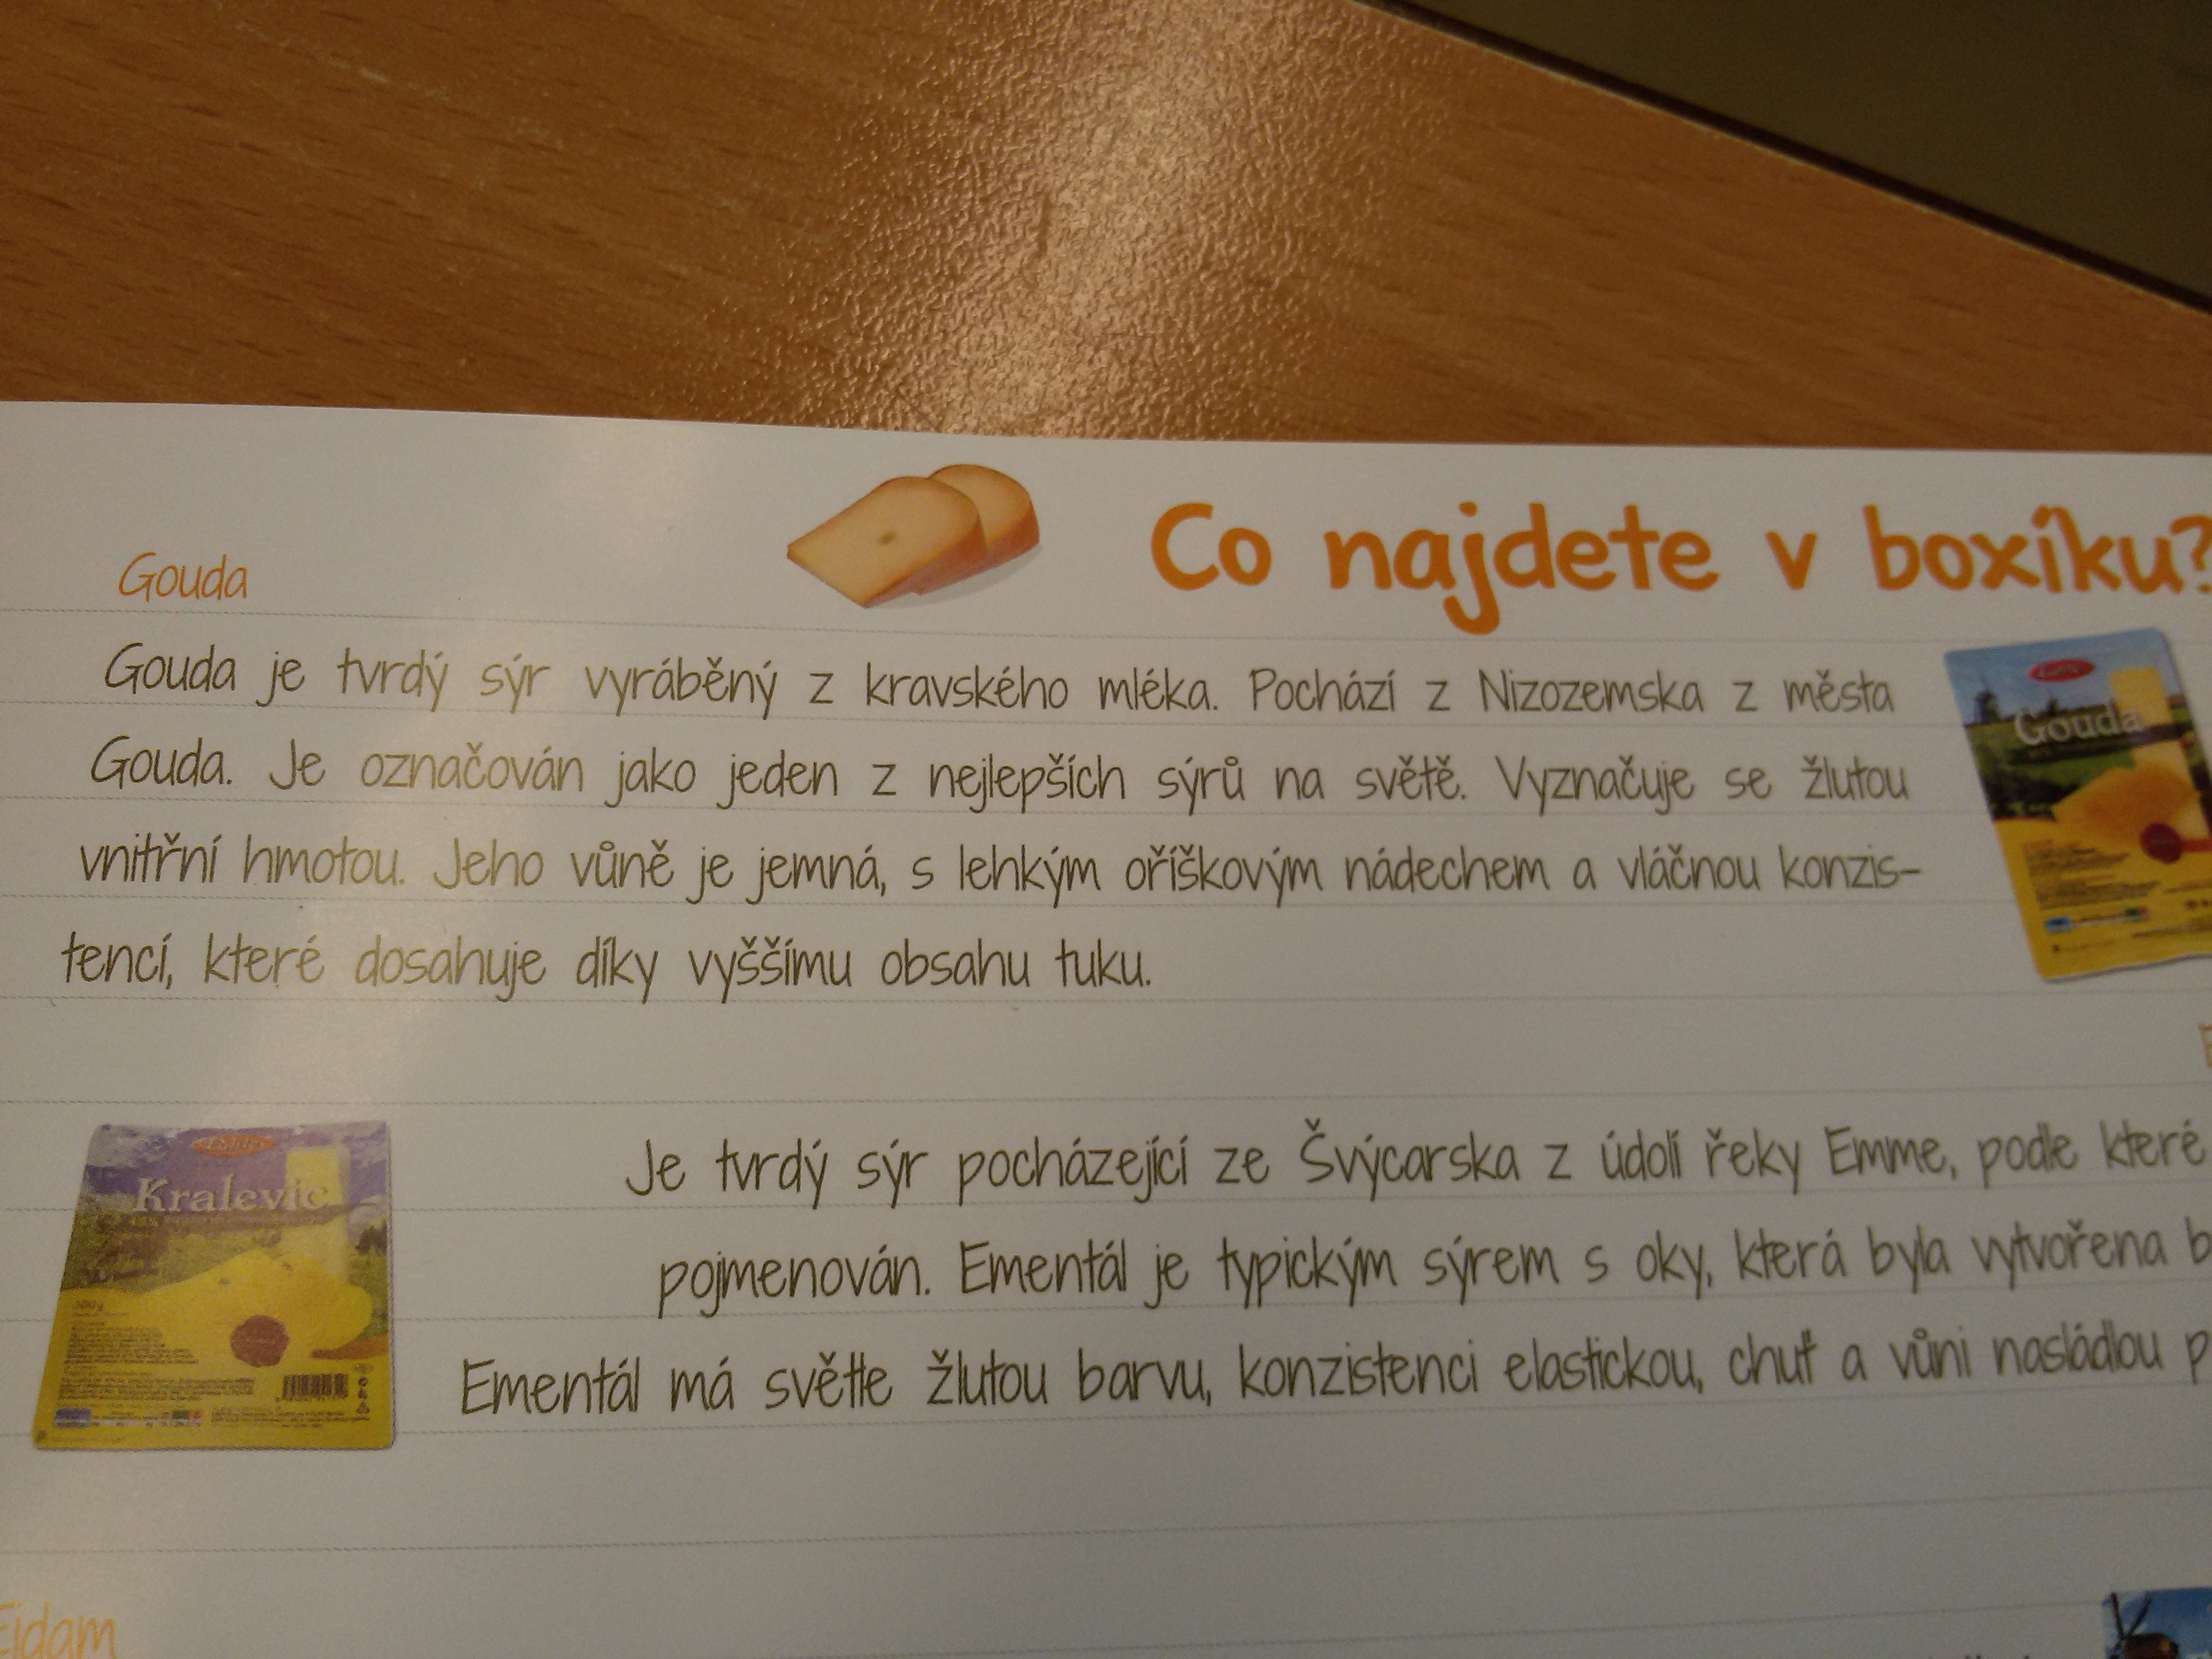 Co najdete v boxíku?
Gouda
Gouda je tvrdý sýr vyráběný z kravského mléka. Pochází z Nizozemska z města
Gouda. Je označován jako jeden z nejlepších sýrů na světě. Vyznačuje se žlutou
vnitřní hmotou. Jeho vůně je jemná, s lehkým oříškovým nádechem a vláčnou konzis-
tencí, které dosahuje díky vyššímu obsahu tuku.
Gouda
Je tvrdý sýr pocházející ze Švýcarska z údolí řeky Emme, podle které
pojmenován. Ementál je typickým sýrem s oky, která byla vytvořena b
Ementál má světle žlutou barvu, konzistenci elastickou, chuť a vůni nasládlou p
Kralevic
Eidam